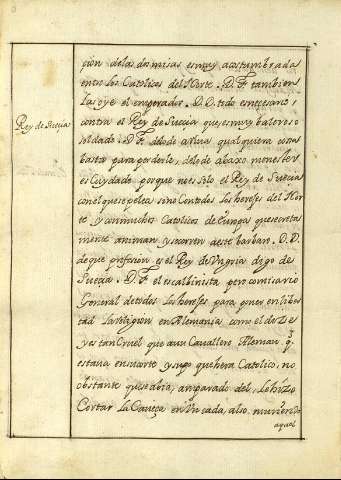 çion de las dos misas es muy acostumbrada
en en los Catolicos del Norte. D. F. tambien
las oye el emperador. D. D. todo es necesario
contra el Rey de Sueçia
Rey de Sueçia ques muy baleroso
soldado. D. F. al de arriua qualquiera cosa
basta para perderle, al de abaxo menester
es Cuydado porque no es solo el Rey de Sueçia
con el que se pelea sino Con todos los herejes del Nor
te y con muchos Catolicos de que secreta
mente animan y socorren a este barbaro. D. D.
de que profesion es el Rey de Vngria digo de
Sueçia. D. F. el es calbinista pero comisario
General de todos los herejes para poner en liber
tad la religion en Alemania como el dize
y es tan Cruel que a un Cauallero Aleman q
estaua en suarte y supo que hera Catolico, no
obstante que se abia, amparado del, le hizo
Cortar la Caueça en Vn cada, also, muriendo
aquel